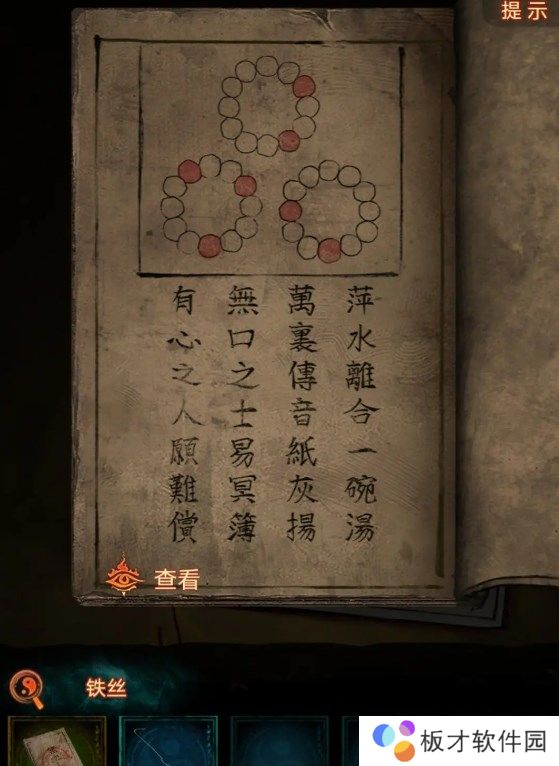 提示
萍水離合一碗湯
萬裏傳音紙灰揚
無口之士易冥薄
有心之人願難償
查看
铁丝
板才软件园